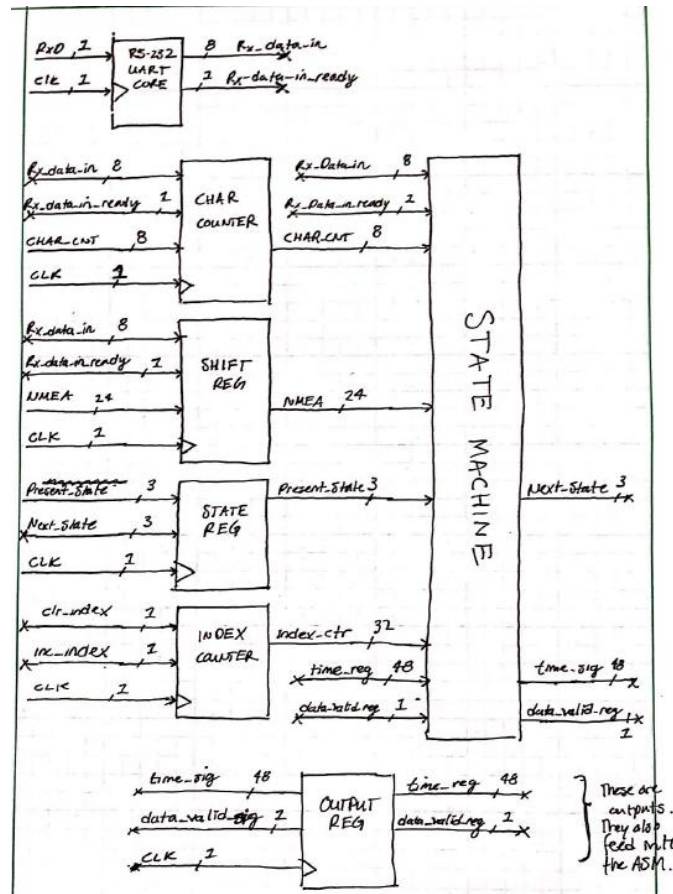 RxD 1
RS-232
UART
CORE
8 Rx_data_in
Clk 1
1 Rx-data-in_ready
Rx_data_in 8
Rx_data_in_ready 1
CHAR_CNT 8
CLK 1
CHAR
COUNTER
Rx_Data_in 8
Rx_Data_in_ready 1
CHAR_CNT 8
Rx_data_in 8
Rx_data_in_ready 1
NMEA 24
CLK 1
SHIFT
REG
NMEA 24
STATE MACHINE
Present_State 3
Next_State 3
CLK 1
STATE
REG
Present_State 3
Next_State 3
clr_index 1
inc_index 1
CLK 1
INDEX
COUNTER
Index_ctr 32
time_reg 48
data_valid_reg 1
time_sig 48
data_valid_reg 1
time_sig 48
data_valid_sig 1
CLK 1
OUTPUT
REG
time_reg 48
data_valid_reg 1
These are
outputs.
They also
feed into
the ASM.